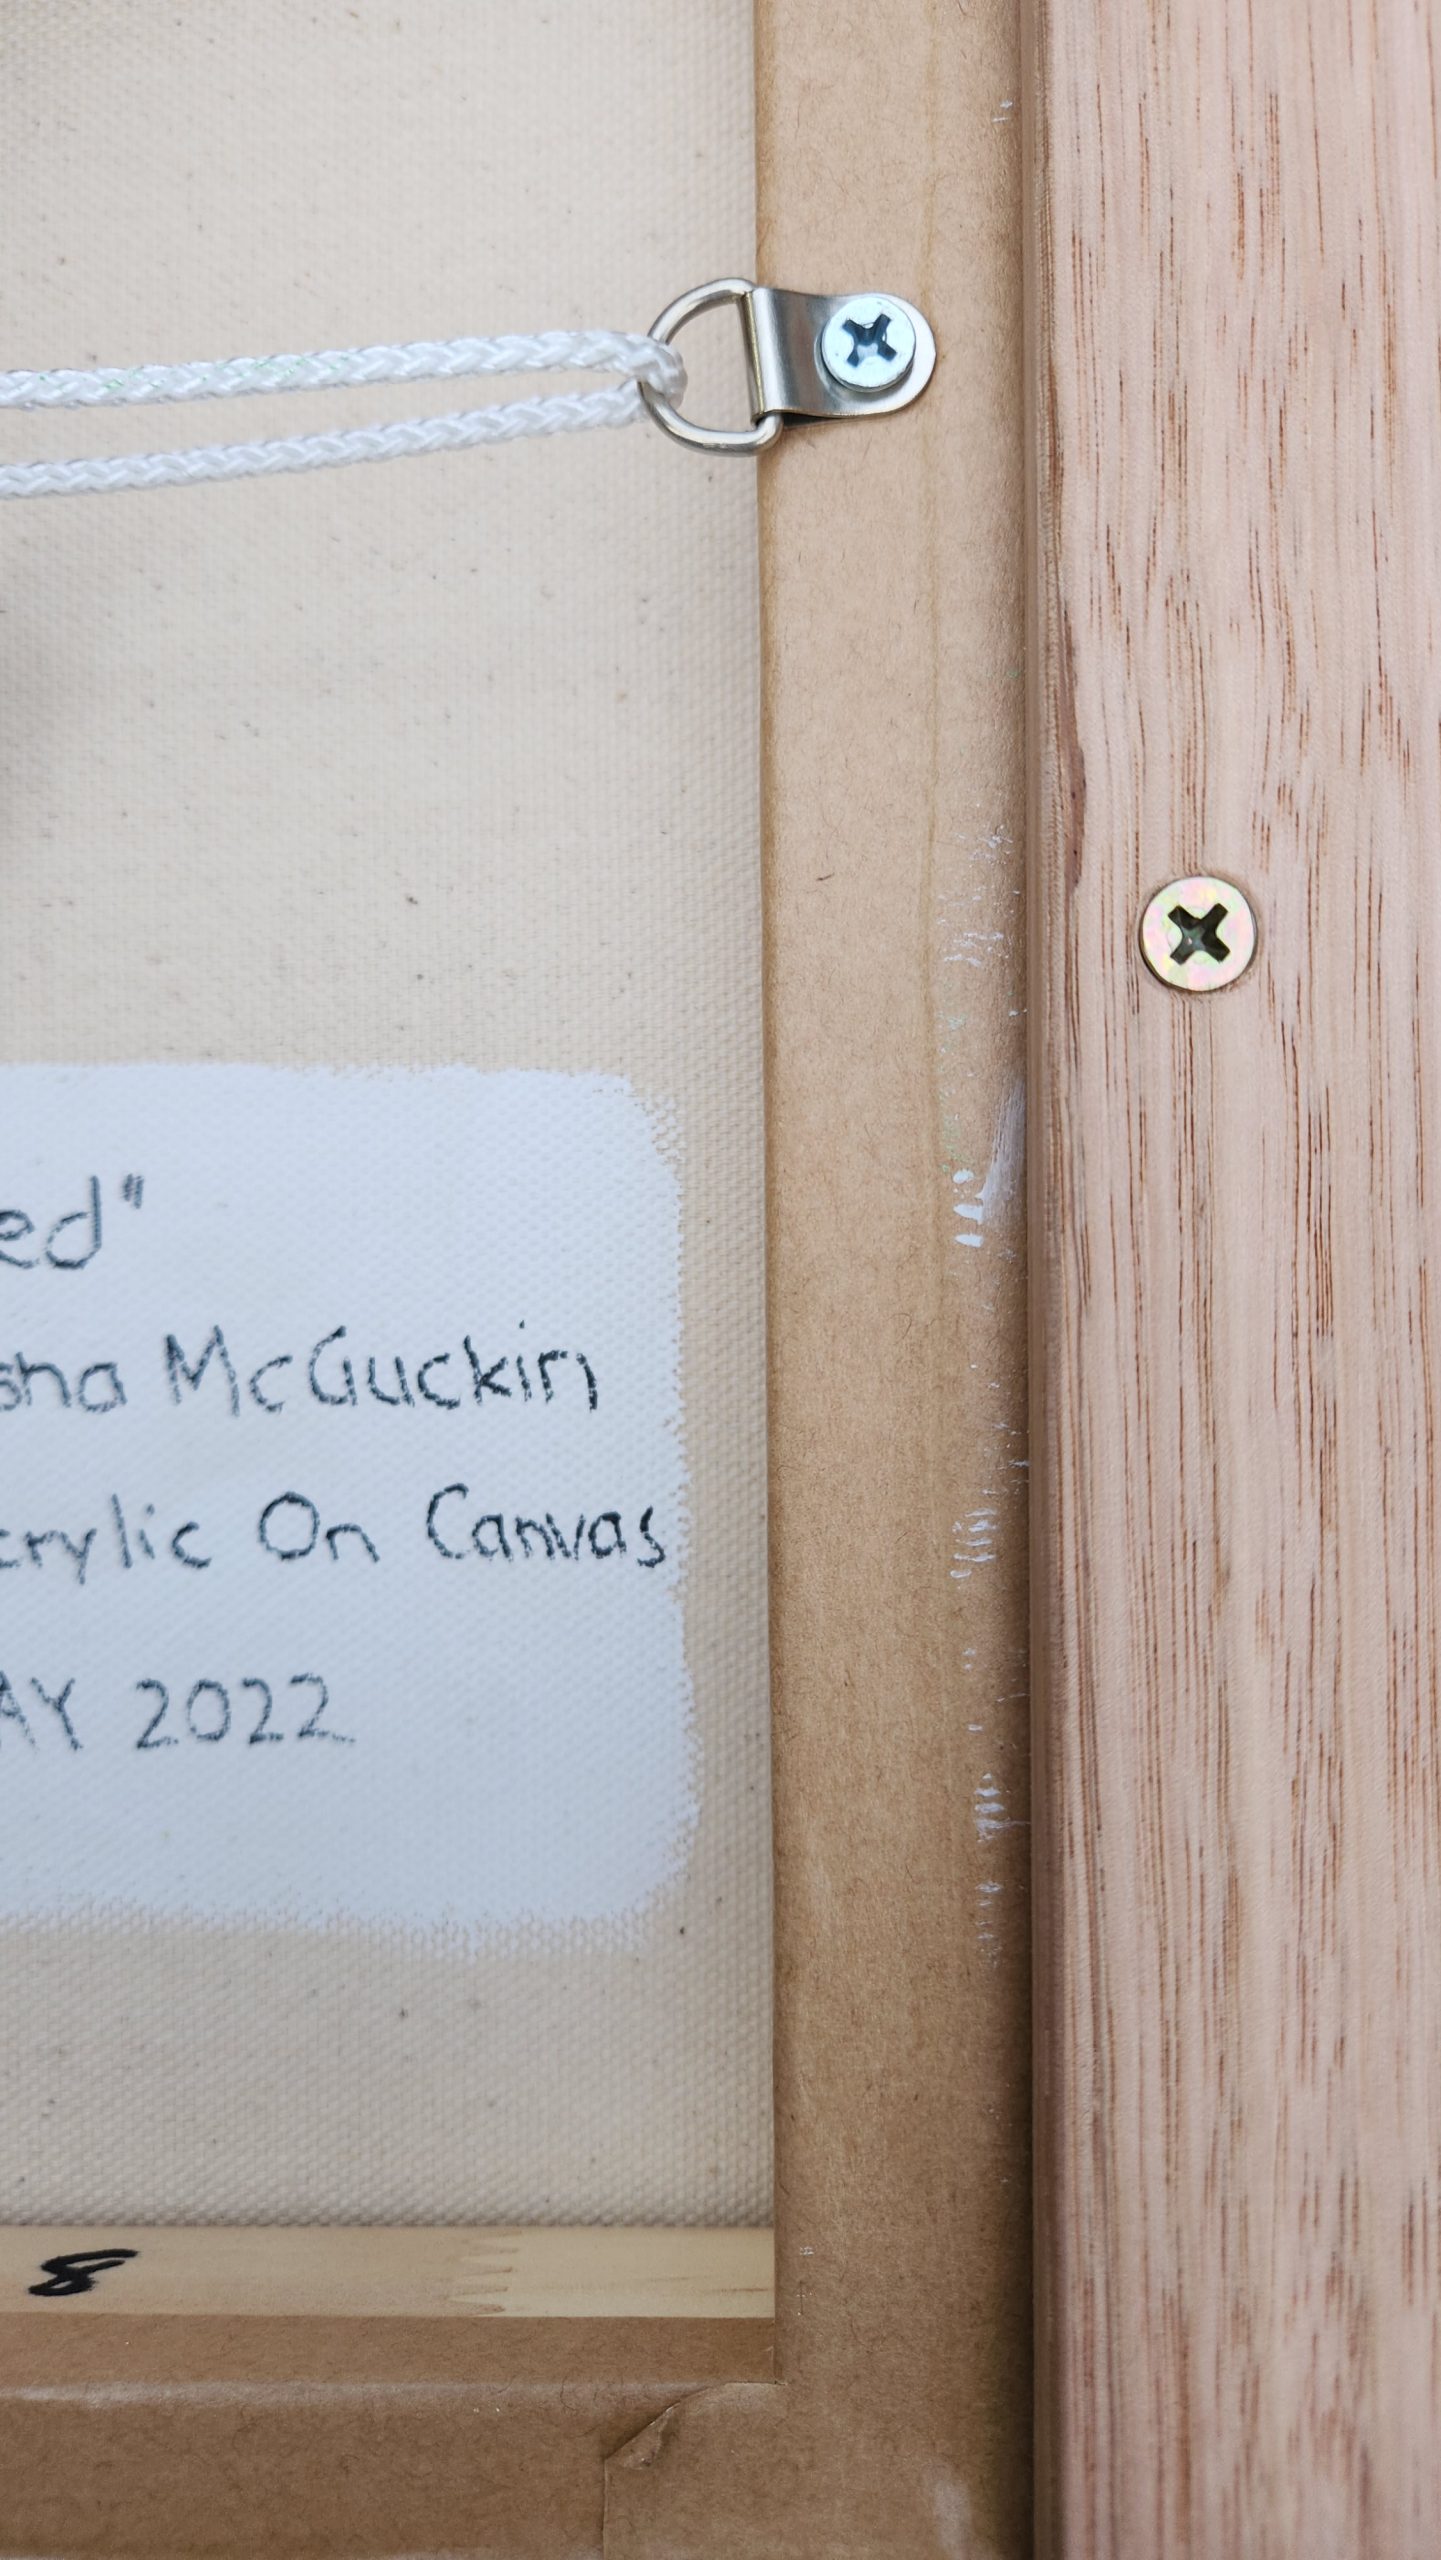 ed"
sha McGuckin
crylic On Canvas
AY 2022
8